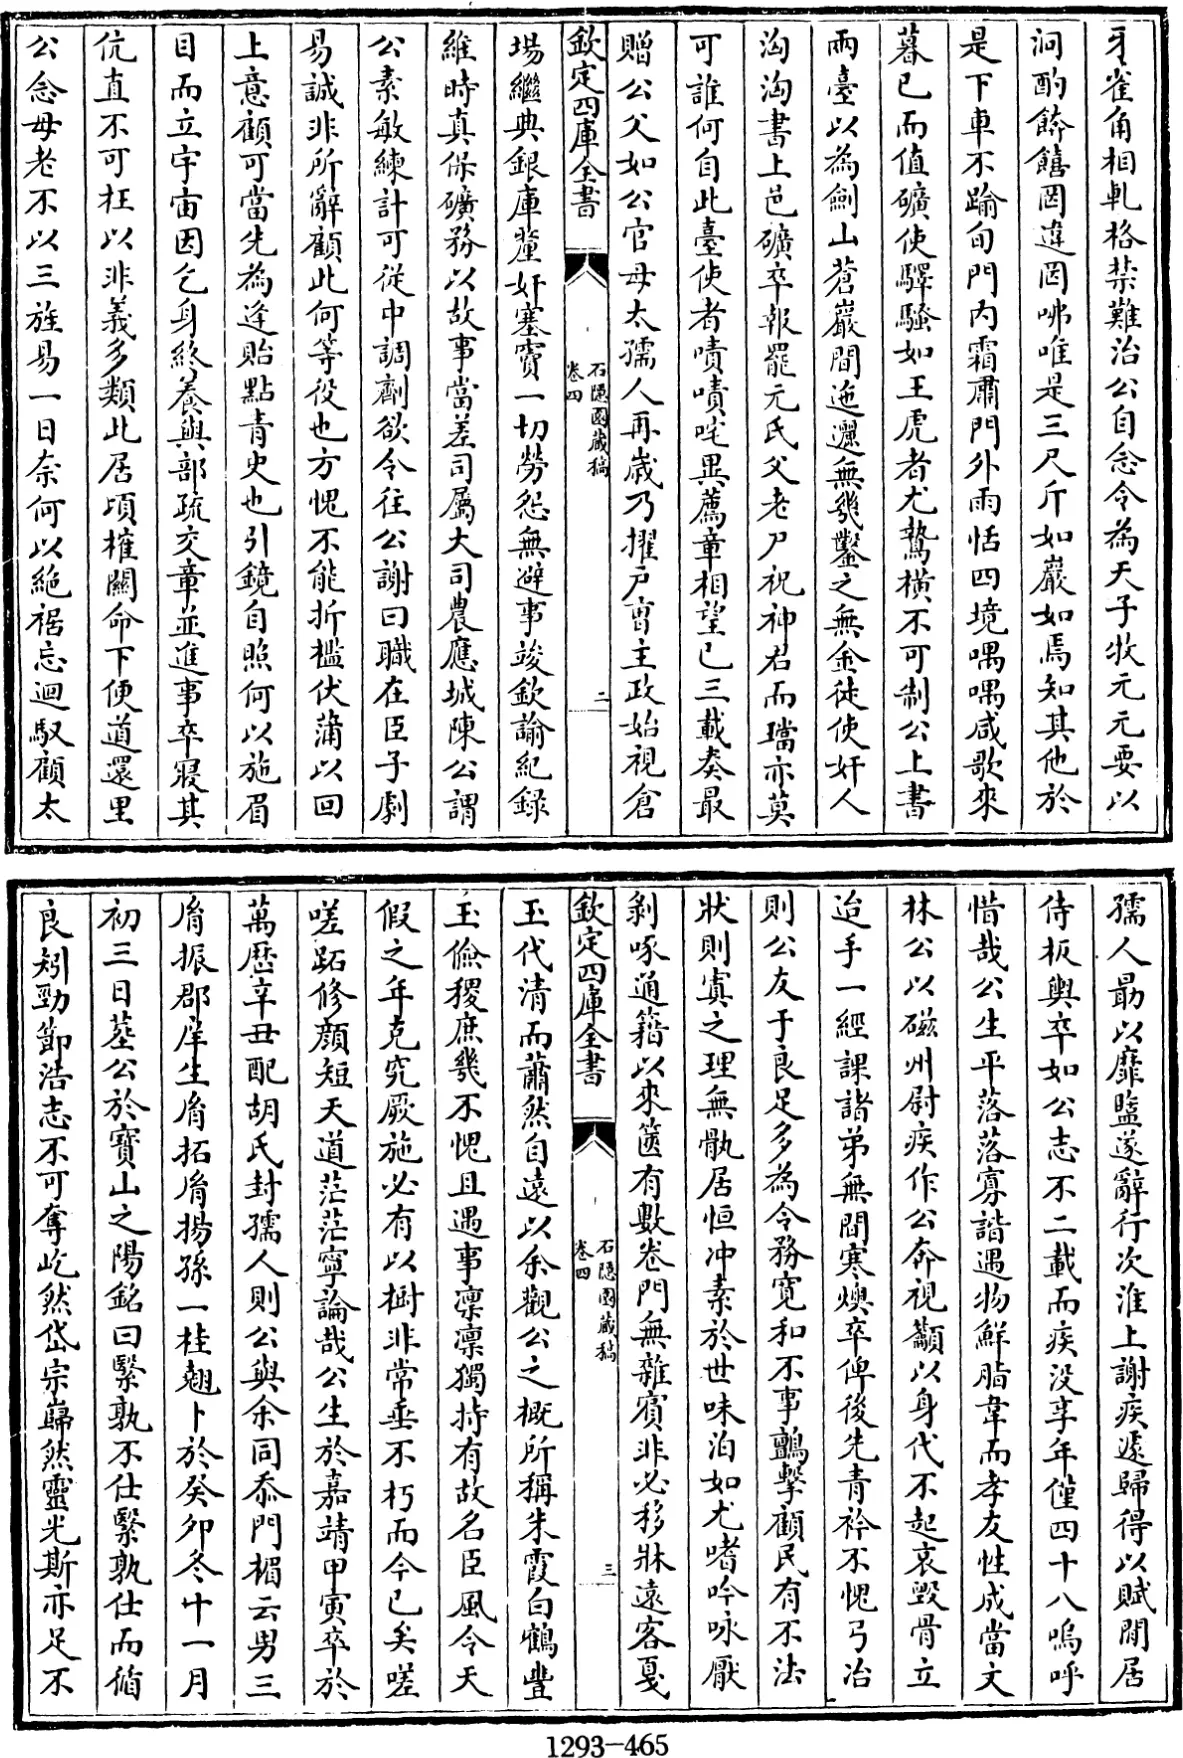 牙雀角相軋格禁難治公自念令為天子牧元元要以
泂酌餴饎罔違罔咈唯是三尺斤如巖如焉知其他於
是下車不踰旬門内霜肅門外雨恬四境喁喁咸歌來
暮已而值礦使驛騷如王虎者尤鷙橫不可制公上書
兩臺以為劍山蒼巖間迤邐無㡬鑿之無金徒使奸人
洶洶書上邑礦卒報罷元氏父老尸祝神君而璫亦莫
可誰何自此臺使者嘖嘖咤異薦章相望已三載奏最
贈公父如公官母太孺人再歲乃擢戸曹主政始視倉
欽定四庫全書
石隠園藏稿
卷四
二
場繼典銀庫釐奸塞竇一切勞怨無避事竣欽諭紀録
維時真保礦務以故事當差司屬大司農應城陳公謂
公素敏練計可從中調劑欲令往公謝曰職在臣子劇
易誠非所辭顧此何等役也方愧不能折檻伏蒲以回
上意顧可當先為逢貽點青史也引鏡自照何以施眉
目而立宇宙因乞身終養與部疏交章並進事卒寢其
伉直不可枉以非義多類此居頃榷關命下便道還里
公念母老不以三旌易一日奈何以絶裾忘迴馭顧太
孺人勗以靡盬遂辭行次淮上謝疾遽歸得以賦閒居
侍板輿卒如公志不二載而疾没享年僅四十八嗚呼
惜哉公生平落落寡諧遇物鮮脂韋而孝友性成當文
林公以磁州尉疾作公奔視籲以身代不起哀毀骨立
迨手一經課諸弟無間寒燠卒俾後先青衿不愧弓冶
則公友于良足多為令務寛和不事鸇擊顧民有不法
狀則寘之理無骩居恒冲素於世味泊如尤嗜吟咏厭
剝啄通籍以來篋有數卷門無雜賓非必移牀遠客戛
欽定四庫全書
石隠園藏稿
卷四
三
玉代清而蕭然自遠以余觀公之概所稱朱霞白鶴豐
玉儉稷庶㡬不愧且遇事凛凛獨持有故名臣風今天
假之年克究厥施必有以樹非常垂不朽而今已矣嗟
嗟跖修顔短天道茫茫寧論哉公生於嘉靖甲寅卒於
萬厯辛丑配胡氏封孺人則公與余同忝門楣云男三
胤振郡庠生胤拓胤揚孫一桂翹卜於癸夘冬十一月
初三日塟公於寳山之陽銘曰緊孰不仕緊孰仕而脩
良矧勁節浩志不可奪屹然岱宗巋然靈光斯亦足不
1293-465